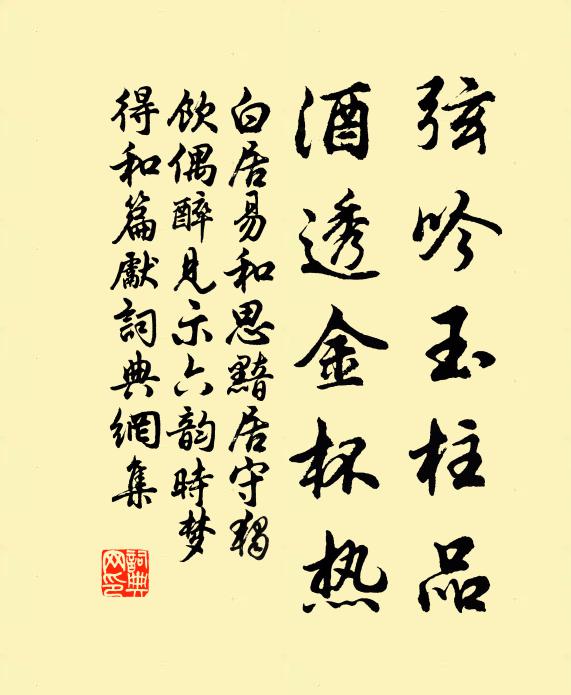 弦吟玉柱品
酒透金杯热
白居易和思黯居守独
饮偶醉见示六韵時梦
得和篇獻詞典網集